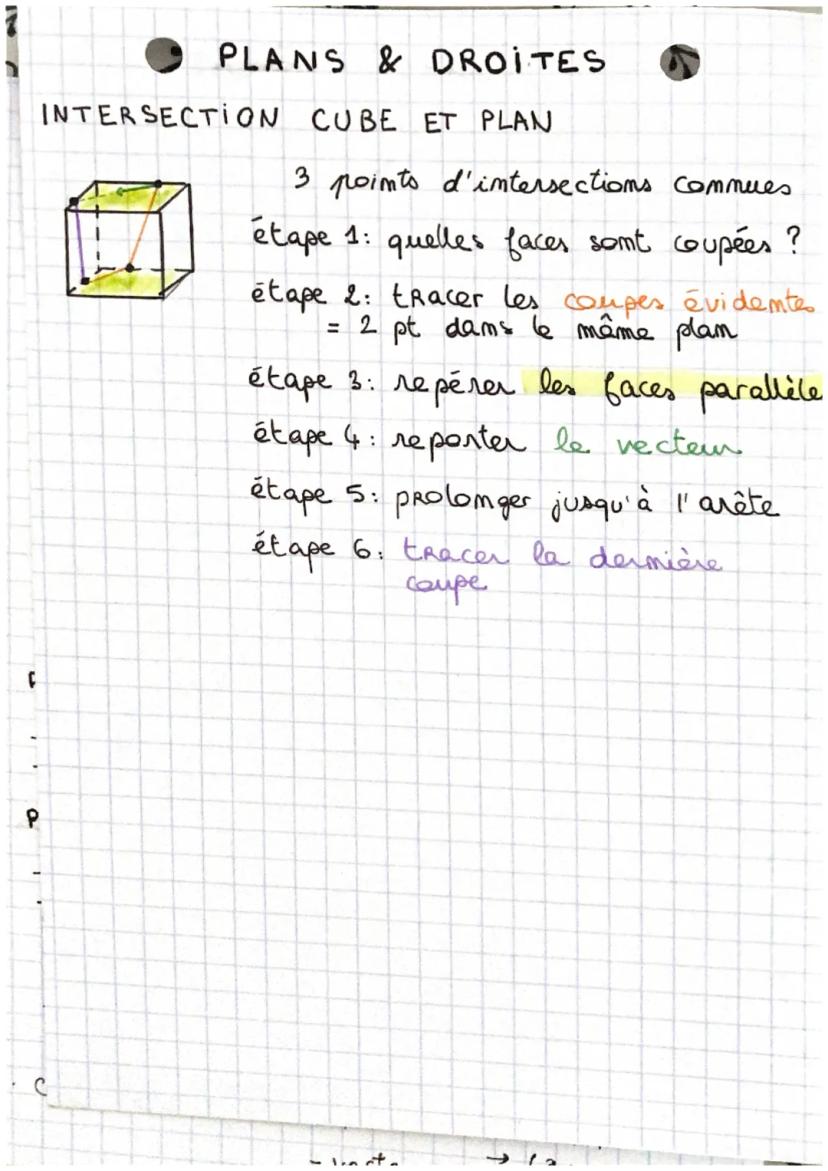 PLANS & DROITES
INTERSECTION CUBE ET PLAN
3 points d'intersections connues
étape 1: quelles faces sont coupées ?
étape 2: tracer les coupes évidentes
= 2 pt dans le même plan
étape 3: repérer les faces parallèle
étape 4: reporter le vecteur
étape 5: prolonger jusqu'à l'arête
étape 6: tracer la dernière
coupe
P
C